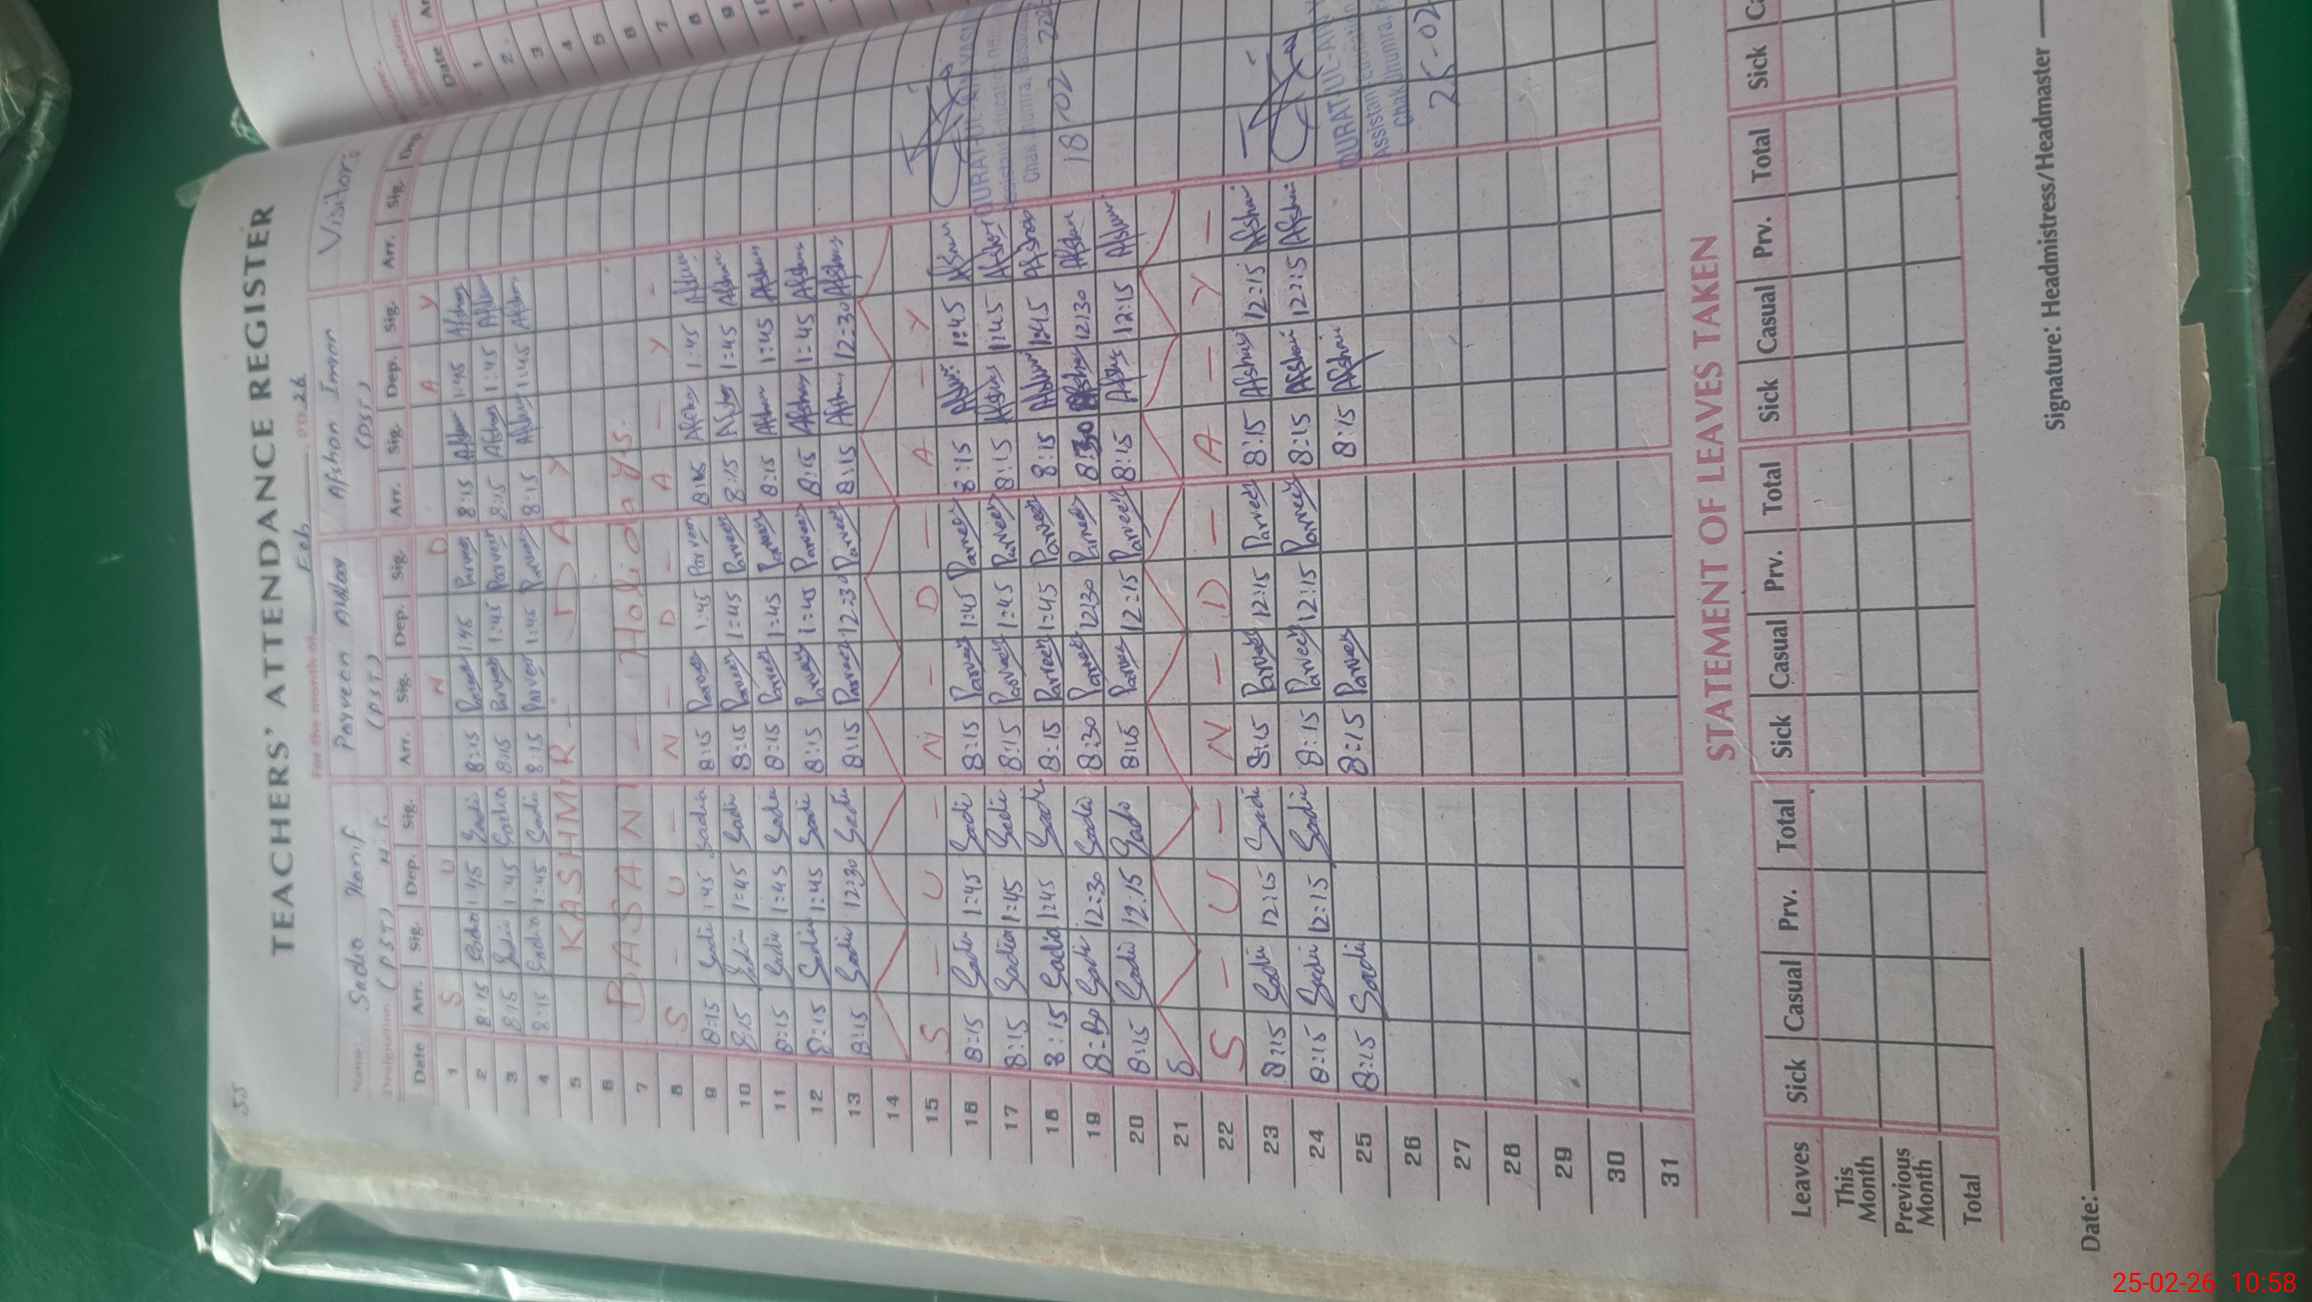 55
TEACHERS' ATTENDANCE REGISTER
For the month of Feb 2026
Name: Sadia Hanif Parveen Afshan Iman Visitors
Designation (PST) H.T. (PST) (PST)
Date Arr. Sig. Dep. Sig. Arr. Sig. Dep. Sig. Arr. Sig. Dep. Sig. Arr. Sig. Dep.
1 S U N D A Y
2 8:15 Sadia 1:45 Sadia 8:15 Parveen 1:45 Parveen 8:15 Afshan 1:45 Afshan
3 8:15 Sadia 1:45 Sadia 8:15 Parveen 1:45 Parveen 8:15 Afshan 1:45 Afshan
4 8:15 Sadia 1:45 Sadia 8:15 Parveen 1:45 Parveen 8:15 Afshan 1:45 Afshan
5 KASHMIR - DAY
6
7 BASANT - Holidays.
8 S - U - N - D - A - Y -
9 8:15 Sadia 1:45 Sadia 8:15 Parveen 1:45 Parveen 8:15 Afshan 1:45 Afshan
10 8:15 Sadia 1:45 Sadia 8:15 Parveen 1:45 Parveen 8:15 Afshan 1:45 Afshan
11 8:15 Sadia 1:45 Sadia 8:15 Parveen 1:45 Parveen 8:15 Afshan 1:45 Afshan
12 8:15 Sadia 1:45 Sadia 8:15 Parveen 1:45 Parveen 8:15 Afshan 1:45 Afshan
13 8:15 Sadia 12:30 Sadia 8:15 Parveen 12:30 Parveen 8:15 Afshan 12:30 Afshan
14
15 S - U - N - D - A - Y
16 8:15 Sadia 1:45 Sadia 8:15 Parveen 1:45 Parveen 8:15 Afshan 1:45 Afshan
17 8:15 Sadia 1:45 Sadia 8:15 Parveen 1:45 Parveen 8:15 Afshan 1:45 Afshan QURAT-UL-AIN
18 8:15 Sadia 1:45 Sadia 8:15 Parveen 1:45 Parveen 8:15 Afshan 1:45 Afshan
19 8:30 Sadia 12:30 Sadia 8:30 Parveen 12:30 Parveen 8:30 Afshan 12:30 Afshan 18-02
20 8:15 Sadia 12:15 Sadia 8:15 Parveen 12:15 Parveen 8:15 Afshan 12:15 Afshan
21 S
22 S - U - N - D - A - Y -
23 8:15 Sadia 12:15 Sadia 8:15 Parveen 12:15 Parveen 8:15 Afshan 12:15 Afshan
24 8:15 Sadia 12:15 Sadia 8:15 Parveen 12:15 Parveen 8:15 Afshan 12:15 Afshan
25 8:15 Sadia 8:15 Parveen 8:15 Afshan QURAT-UL-AIN
Assistant Education
Chak Jhumra
26 25-02
27
28
29
30
31
STATEMENT OF LEAVES TAKEN
Leaves Sick Casual Prv. Total Sick Casual Prv. Total Sick Casual Prv. Total Sick Ca
This Month
Previous Month
Total
Date: Signature: Headmistress/Headmaster
Date
1
2
3
4
5
6
7
8
9
25-02-26 10:58